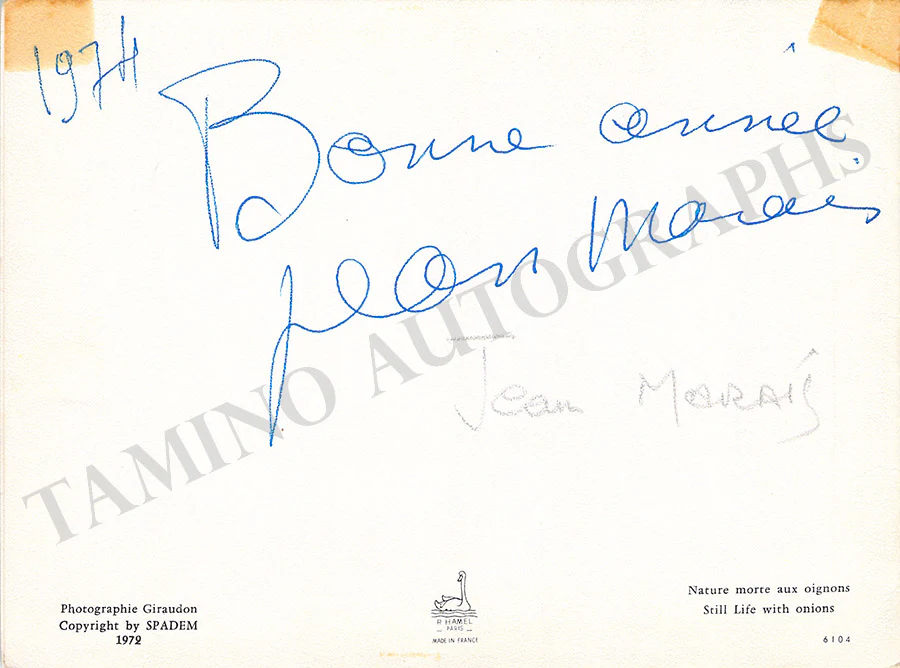 1974
Bonne année
Jean Marais
Jean MARAIS
TAMINO AUTOGRAPHS
Photographie Giraudon
Copyright by SPADEM
1972
R. HAMEL
PARIS
MADE IN FRANCE
Nature morte aux oignons
Still Life with onions
6104